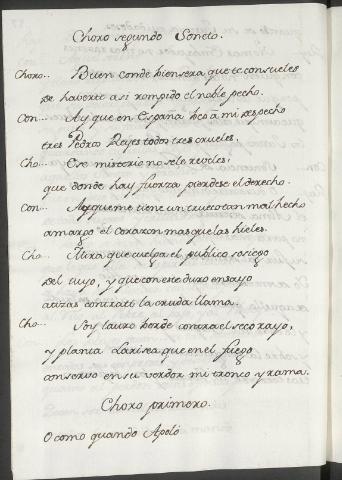 Choro segundo Soneto.
Choro... Buen conde bien sera que te consueles
de haverte asi rompido el noble pecho.
Con... Ay que en España veo a mi despecho
tres Pedros Reyes todos tres crueles.
Cho... Ese misterio no se le reveles;
que donde hay fuerza pierdese el derecho.
Con... Ay que me tiene un trueco tan mal hecho
amargo el corazon mas que las hieles.
Cho... Mira que cuelga el publico sosiego
del tuyo, y que con este duro ensayo
atizas contra ti la cruda llama.
Cho... Soy lauro verde contra el seco rayo,
y planta Larisea que en el fuego
conservo en su verdor mi tronco y rama.
Choro primero.
O como quando Apolo